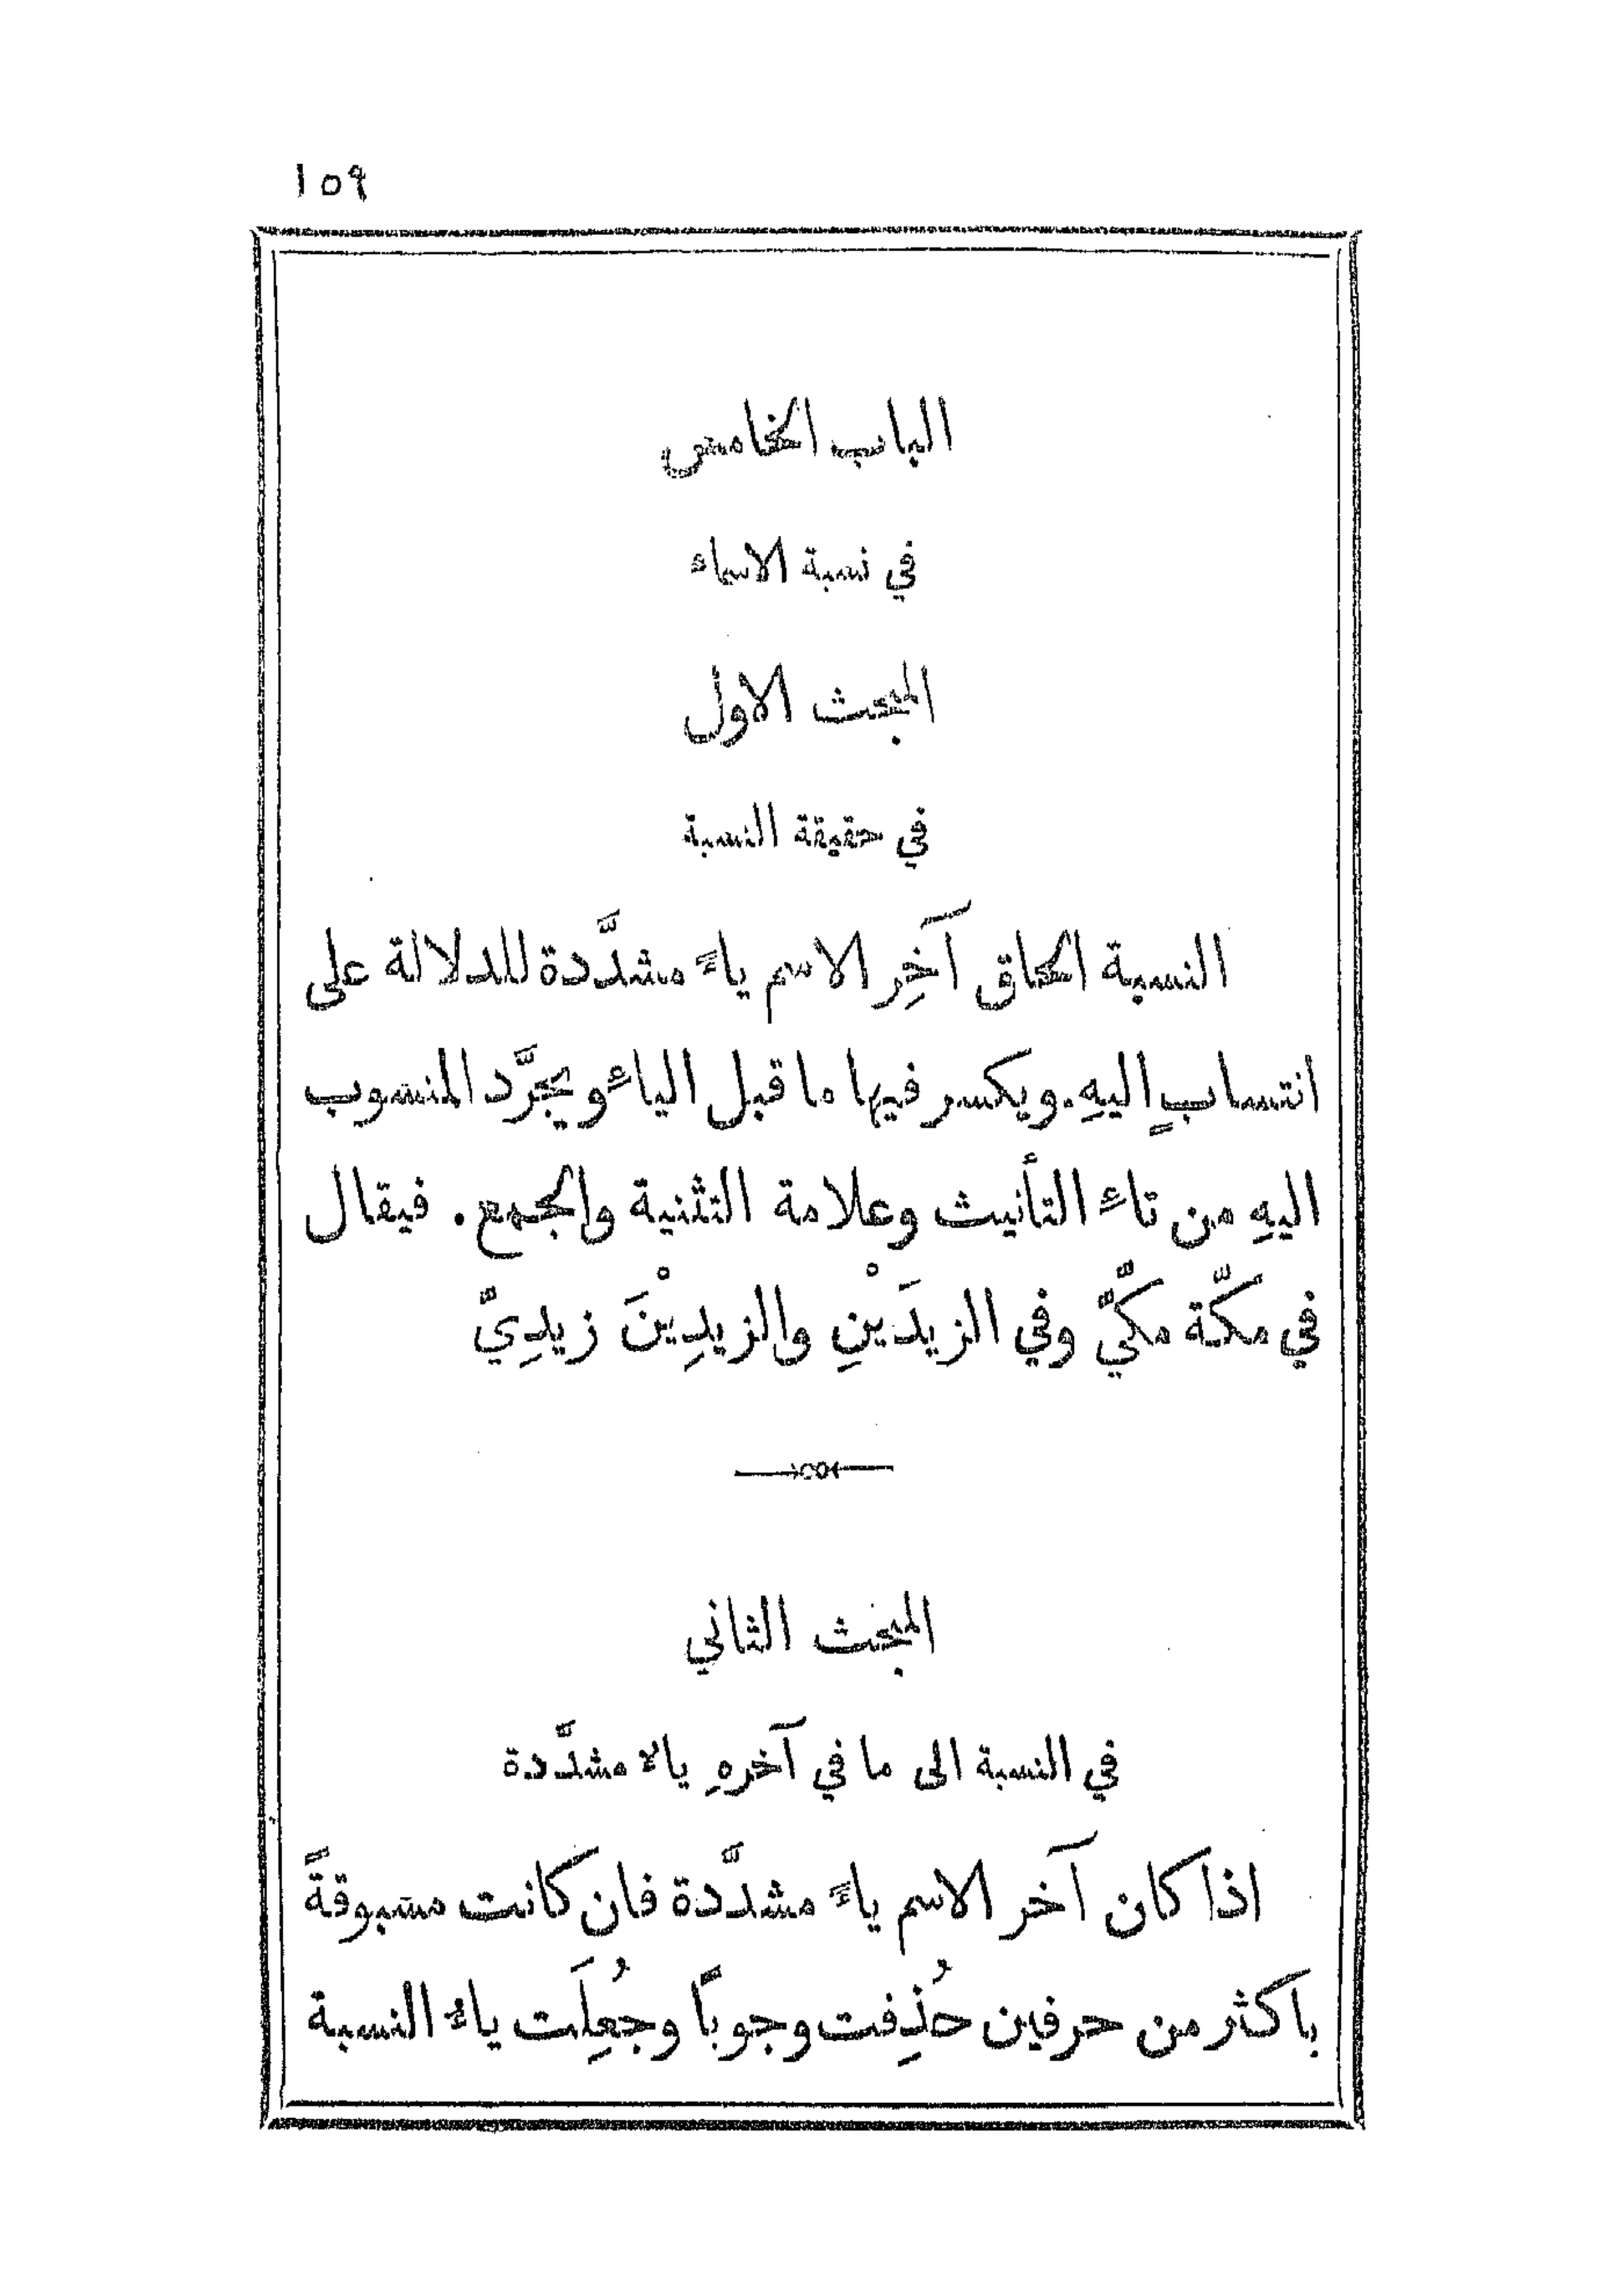 ١٥٩
الباب الخامس
في نسبة الاسماء
المبحث الاول
في حقيقة النسبة
النسبة الحاق آخِر الاسم ياءً مشدَّدة للدلالة على
انتسابٍ اليهِ. ويكسر فيها ما قبل الياء ويجرَّد المنسوب
اليهِ من تاء التأنيث وعلامة التثنية والجمع. فيقال
في مكّة مكّيٌّ وفي الزيدَيْنِ والزيدِيْنَ زيدِيٌّ
المبحث الثاني
في النسبة الى ما في آخرهِ ياء مشدَّدة
اذا كان آخر الاسم ياءً مشدَّدة فان كانت مسبوقةً
باكثر من حرفين حُذِفت وجوباً وجُعِلَت ياء النسبة